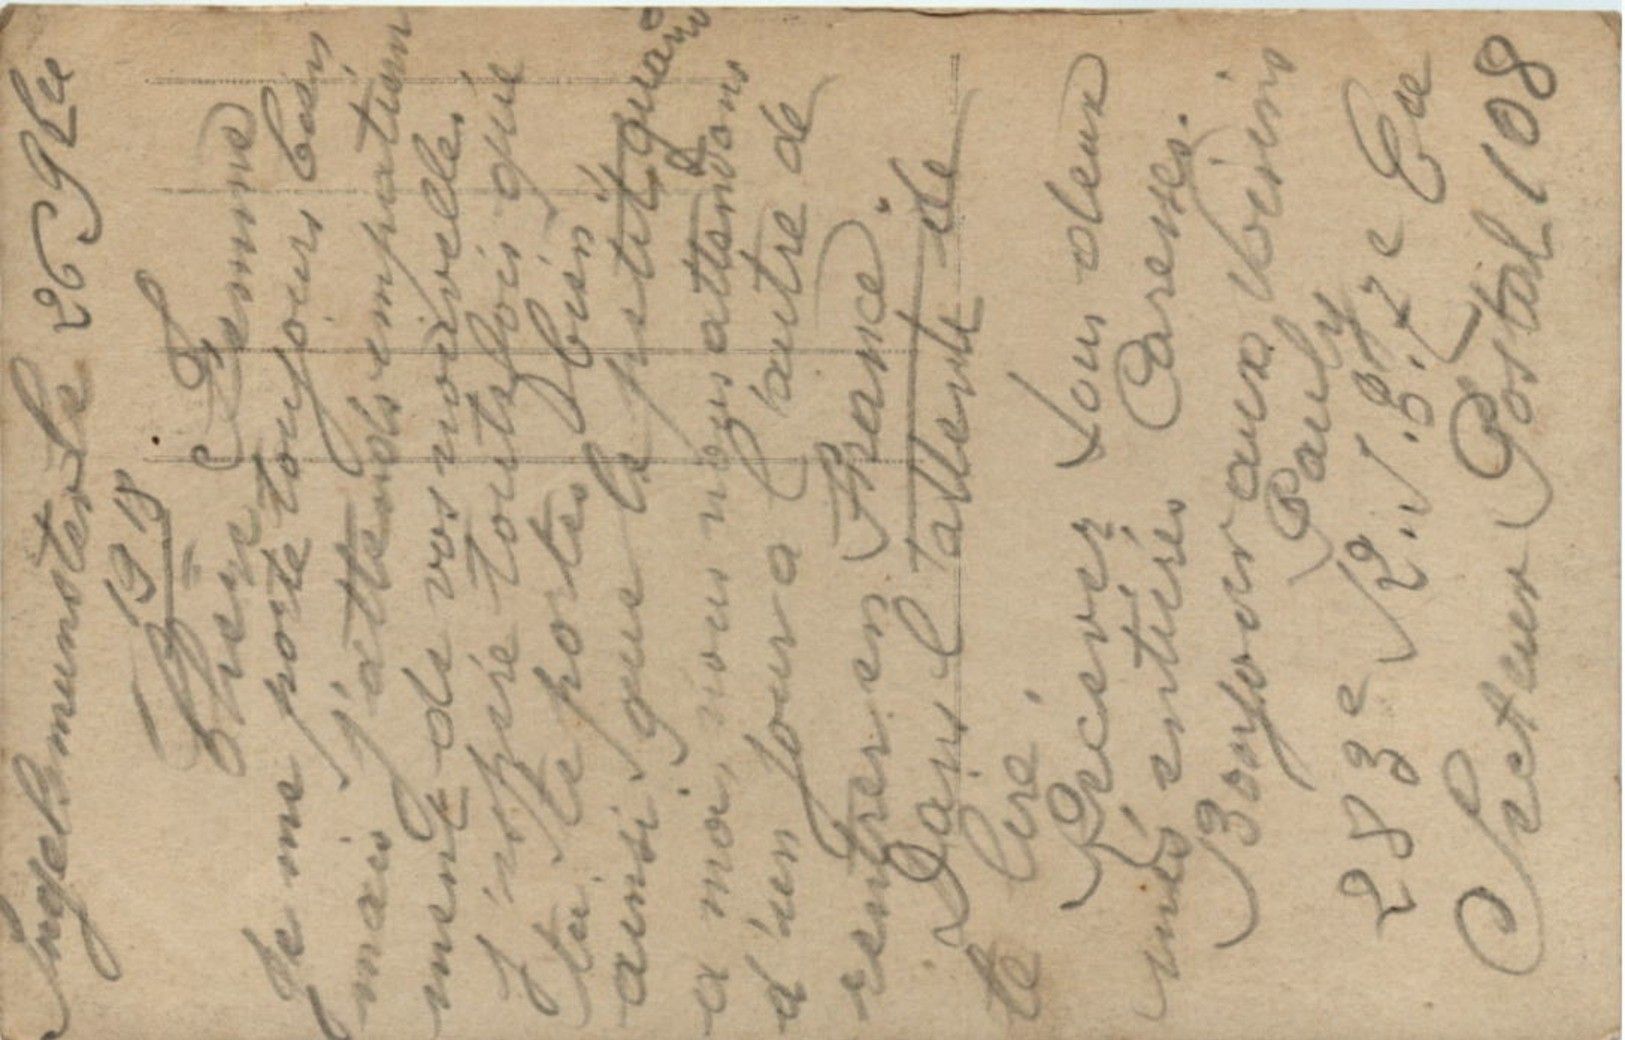 Ingelsmunster Le 26 9bre
1918
Chère Femme
Je me porte toujours bien
mais j'attends impatiem
ment de vos nouvelle.
J'espère toutefois que
tu te portes bien
ainsi que le petit, quand
a moi, nous nous attendons
d'un jour a l'autre de
rentrer en France.
Dans l'attente de
te lire,
Recevez tous deux
mes entières Caresses.
Bonjour aux voisins
Pauly
283e R.I. 17e Cie
Secteur Postal 108